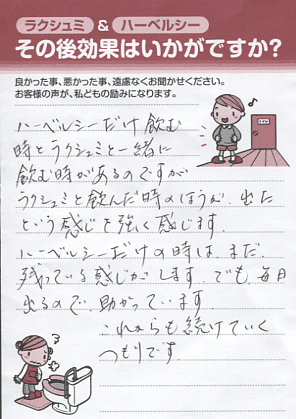 ラクシュミ & ハーベルシー
その後効果はいかがですか?
良かった事、悪かった事、遠慮なくお聞かせください。
お客様の声が、私どもの励みになります。
ハーベルシーだけ飲む
時とラクシュミと一緒に
飲む時があるのですが
ラクシュミと飲んだ時のほうが、出た
という感じを強く感じます。
ハーベルシーだけの時は、まだ、
残っている感じがします。でも、毎日
出るので、助かっています。
これからも続けていく
つもりです。